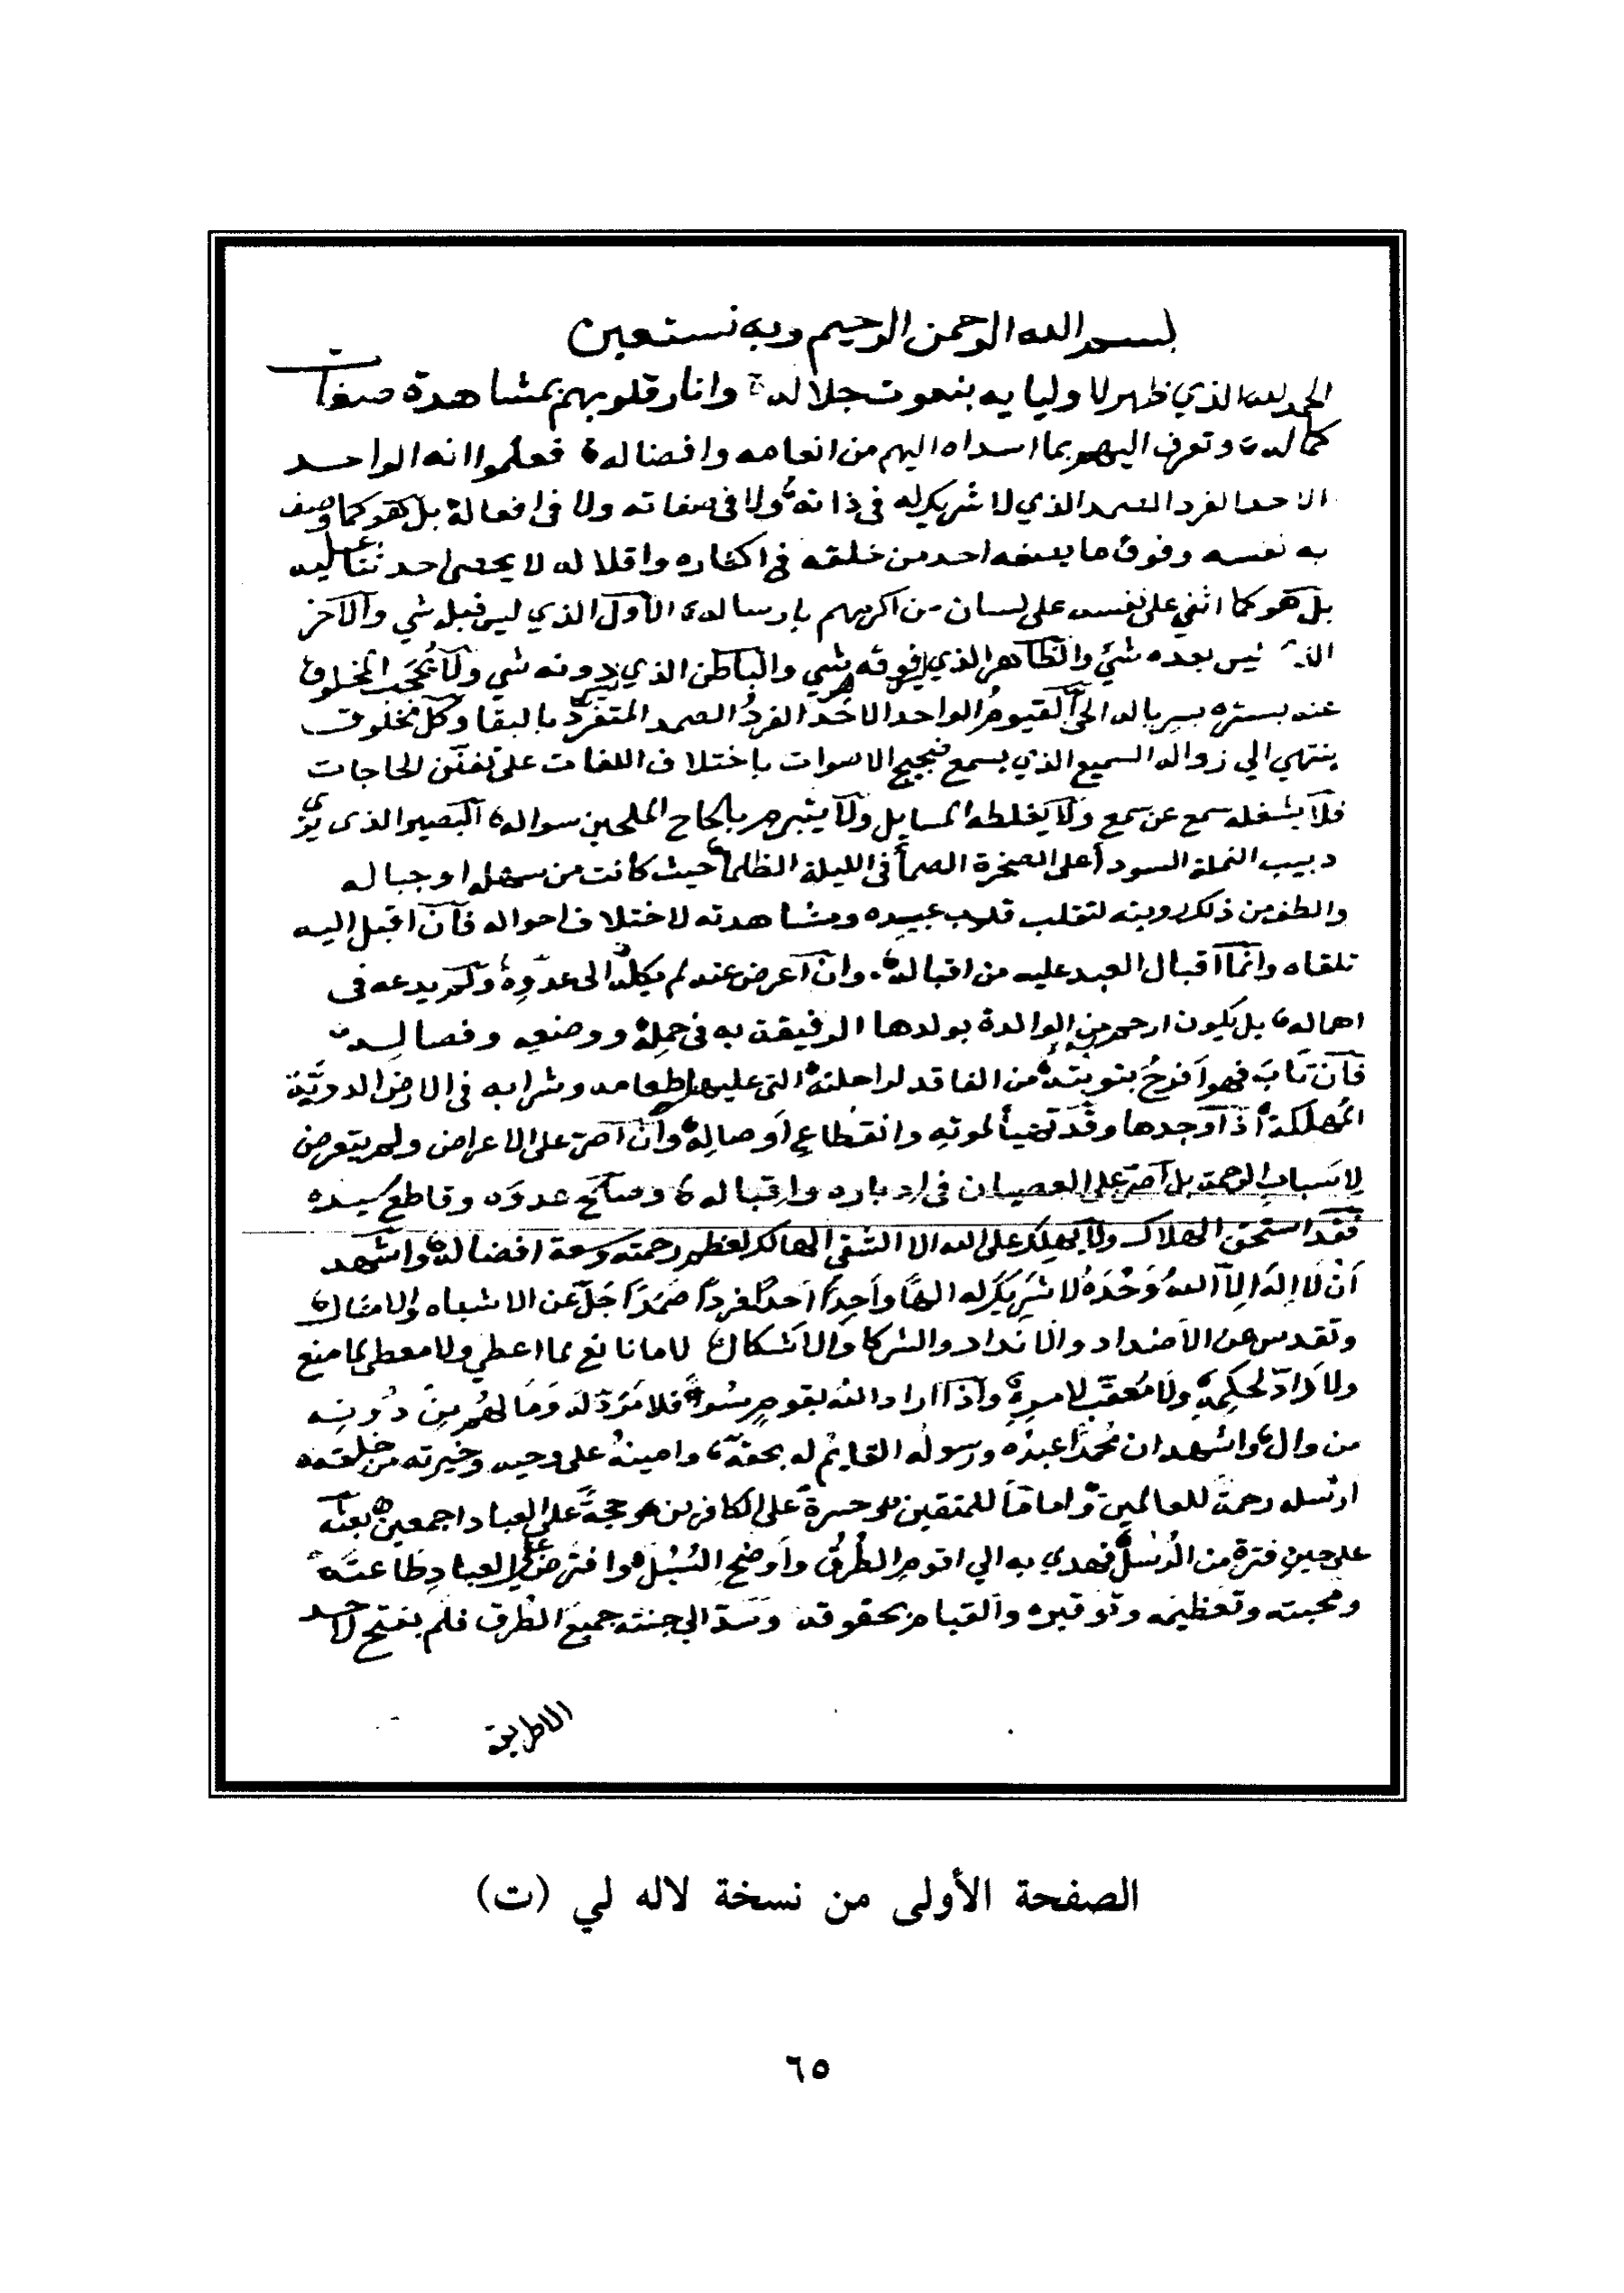 بسم الله الرحمن الرحيم وبه نستعين
الحمد لله الذي ظهر لاوليايه بنعوت جلاله وانار قلوبهم بمشاهدة صفات
كماله وتعرف اليهم بما اسداه اليهم من انعامه وافضاله فعلموا انه الواحد
الاحد الفرد الصمد الذي لا شريك له في ذاته ولا في صفاته ولا في افعاله بل هو كما وصف
به نفسه وفوق ما يصفه احد من خلقه في اكثاره واقلاله لا يحصى احد ثنا عليه
بل هو كما اثني على نفسه على لسان من اكرمهم بارساله الأول الذي ليس قبله شي والآخر
الذي ليس بعده شئ والظاهر الذي ليس فوقه شي والباطن الذي ليس دونه شي ولا يحجب المخلوق
عنه بستره بسرباله الحي القيوم الواحد الاحد الفرد الصمد المتفرد بالبقا وكل مخلوق
ينتهي الي زواله السميع الذي يسمع ضجيج الاصوات باختلاف اللغات على تفنن الحاجات
فلا يشغله سمع عن سمع ولا يغلطه المسايل ولا يتبرم بالحاح الملحين سواله البصير الذى يرى
دبيب النملة السوداء على الصخرة الصماء في الليلة الظلماء حيث كانت من سهله او جباله
والطف من ذلك رويته لتقلب قلوب عبيده ومشاهدته لاختلاف احواله فان اقبل اليه
تلقاه وانما اقبال العبد عليه من اقباله وان اعرض عنه لم يكله الى عدوه ولم يدعه في
اهماله بل يكون ارحم من الوالدة بولدها الرفيقة به في حمله ووضعه وفصاله
فان تاب فهو أفرح بتوبته من الفاقد لراحلته التي عليها طعامه وشرابه في الارض الدوية
المهلكة اذا وجدها وقد تهيأ لموته وانقطاع اوصاله وان اصر على الاعراض ولم يتعرض
لاسباب الرحمة بل اصر على العصيان في ادباره واقباله وصالح عدوه وقاطع سيده
فقد استحق الهلاك ولا يهلك على الله الا الشقي الهالك لعظم رحمته وسعة افضاله واشهد
أن لا إله إلا الله وحده لا شريك له الهًا واحدًا أحدًا فردًا صمدًا جل عن الاشباه والامثال
وتقدس عن الأضداد والأنداد والشركا والاشكال لا مانع لما اعطي ولا معطي لما منع
ولا راد لحكمه ولا معقب لامره واذا اراد الله بقوم سوء فلا مرد له وما لهم من دونه
من وال واشهد ان محمدا عبده ورسوله القايم له بحقه وامينه على وحيه وخيرته من خلقه
ارسله رحمة للعالمين واماما للمتقين وحسرة على الكافرين وحجة على العباد اجمعين بعثه
على حين فترة من الرسل فهدي به الي اقوم الطرق واوضح السبل وافترض على العباد طاعته
ومحبته وتعظيمه وتوقيره والقيام بحقوقه وسد الي جنته جميع الطرق فلم يفتح لاحد
الا طريقه
الصفحة الأولى من نسخة لاله لي (ت)
٦٥